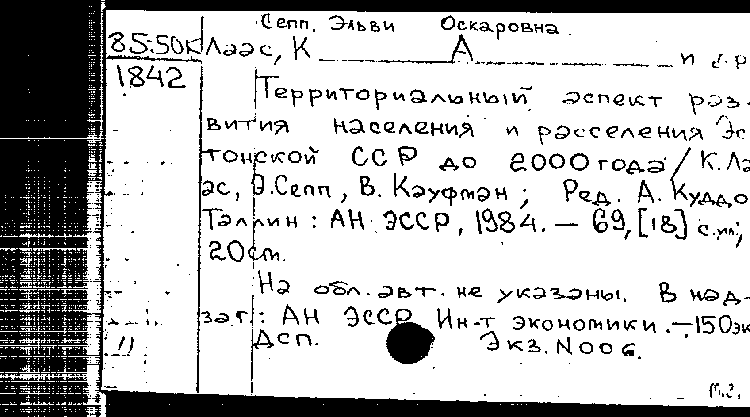 Сепп, Эльви Оскаровна
85:50К Лаас, К А и др
1842
Территориальный аспект раз-
вития населения и расселения Эс
тонской ССР до 2000 года / К. Ла
ас, Э. Сепп, В. Кауфман; Ред. А. Куддо
Таллин: АН ЭССР, 1984. — 69, [18] с.ил;
20см.
На обл. авт. не указаны. В над-
заг.: АН ЭССР, Ин-т экономики. — 150эк
11 Дсп. Экз. N006.
М.2,